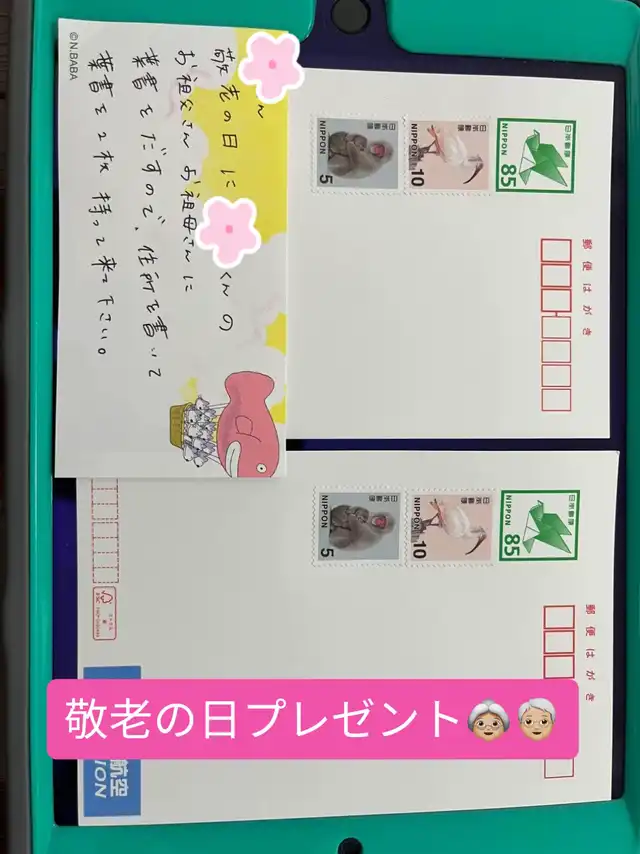 ©N.BABA
ん
敬老の日に くんの
お祖父さん お祖母さんに
葉書をだすので、住所を書いて
葉書を2枚 持って来て下さい。
NIPPON
5
日本郵便
NIPPON
10
日本郵便
NIPPON
85
日本郵便
郵便はがき
NIPPON
5
日本郵便
NIPPON
10
日本郵便
NIPPON
85
日本郵便
郵便はがき
航空
ION
敬老の日プレゼント👵🏼👴🏼